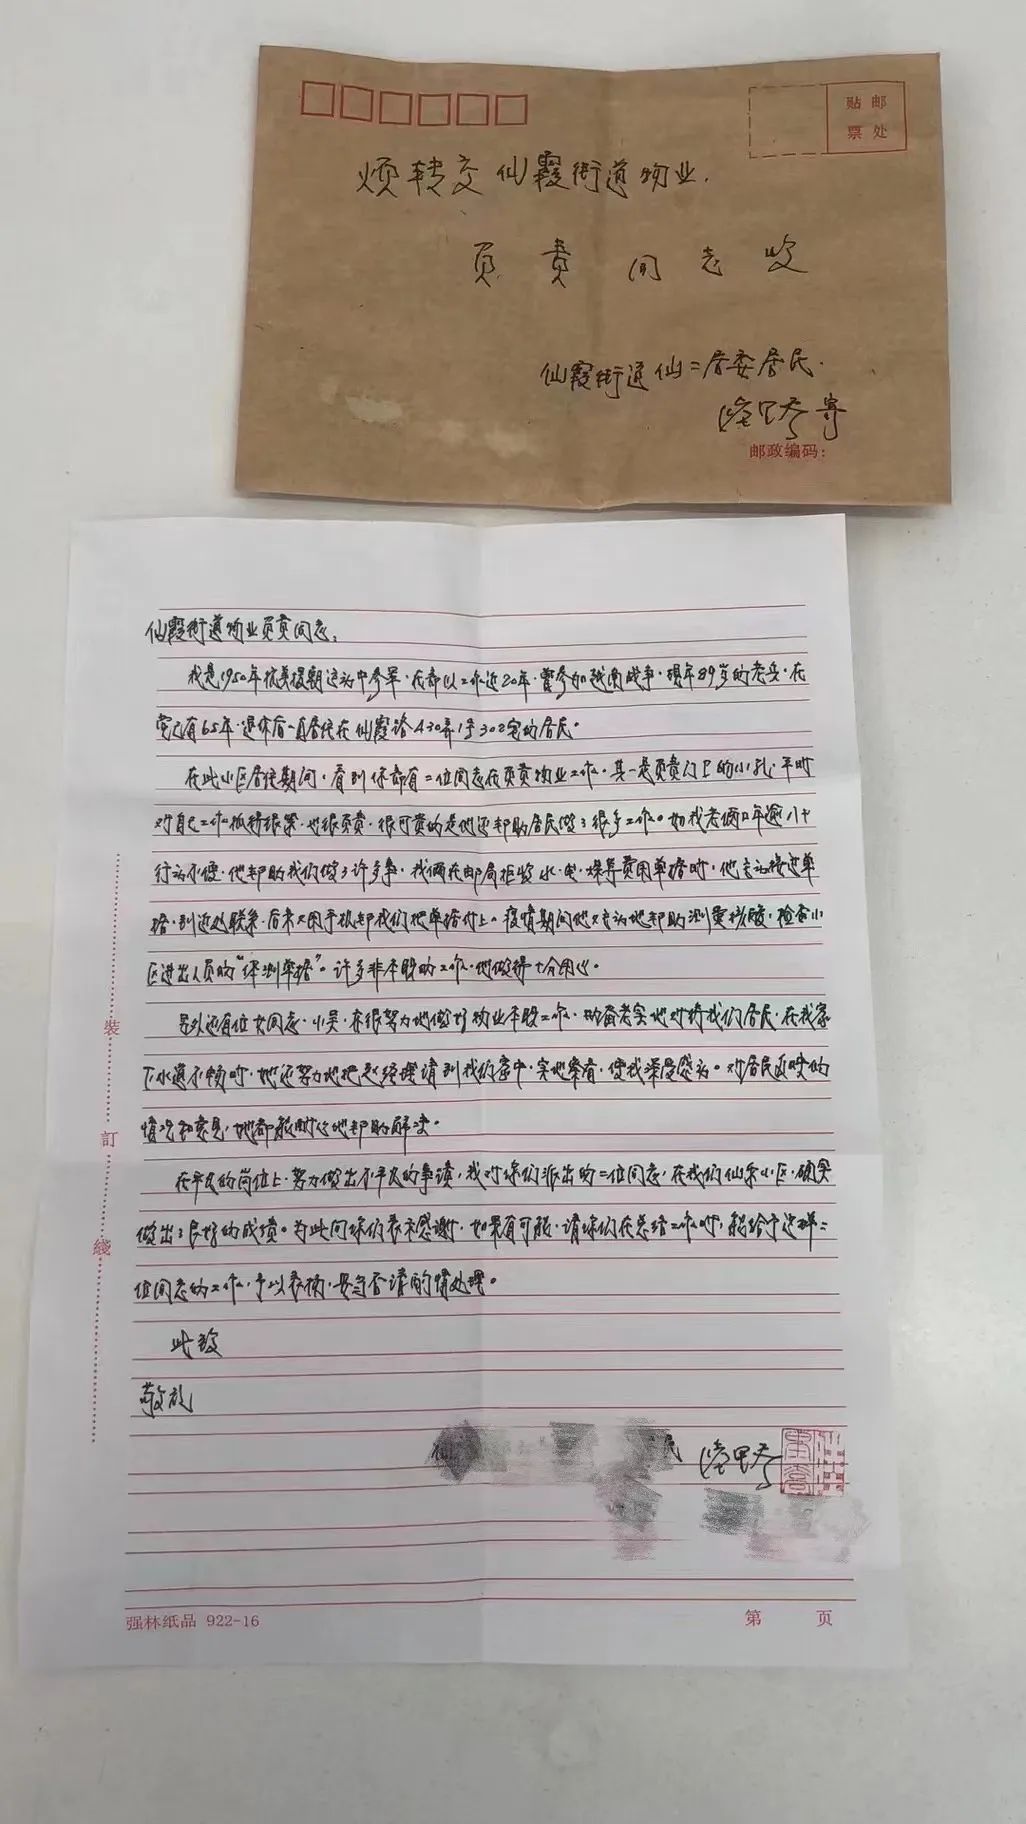 贴 邮
票 处
烦转交仙霞街道物业.
负责同志收
仙霞街道仙二居委居民.
寄
邮政编码:
仙霞街道物业负责同志,
我是1950年抗美援朝运动中参军.在部队工作近20年.曾参加越南战争.现年89岁的老兵.在
党已有65年.退休后一直居住在仙霞路430弄1号302室的居民。
在此小区居住期间.看到你部有二位同志在负责物业工作.其一是负责门卫的小孔.平时
对自己工作抓得很紧.也很负责.很可贵的是他还帮助居民做了很多工作。如我老俩口年逾八十
行动不便.他帮助我们做了许多事.我俩在邮局拒收水.电.煤等费用单据时.他主动接过单
据.到近处联系.后来又用手机帮我们把单据付上。疫情期间他又主动地帮助测量核酸.检查小
区进出人员的"评测单据"。许多非本职的工作.他做得十分用心。
另外还有位女同志.小吴.亦很努力地做好物业本职工作.勤奋老实地对待我们居民.在我家
下水道不畅时.她还努力地把赵经理请到我们家中.实地察看.使我深受感动。对居民反映的
情况和意见,她都能耐心地帮助解决。
在平凡的岗位上.努力做出不平凡的事迹,我对你们派出的二位同志,在我们仙乐小区.确实
做出了良好的成绩。为此向你们表示感谢.如果有可能.请你们在总结工作时,能给予这样二
位同志的工作.予以表扬.妥当否请酌情处理。
此致
敬礼
民
裝
訂
綫
强林纸品 922-16
第 页